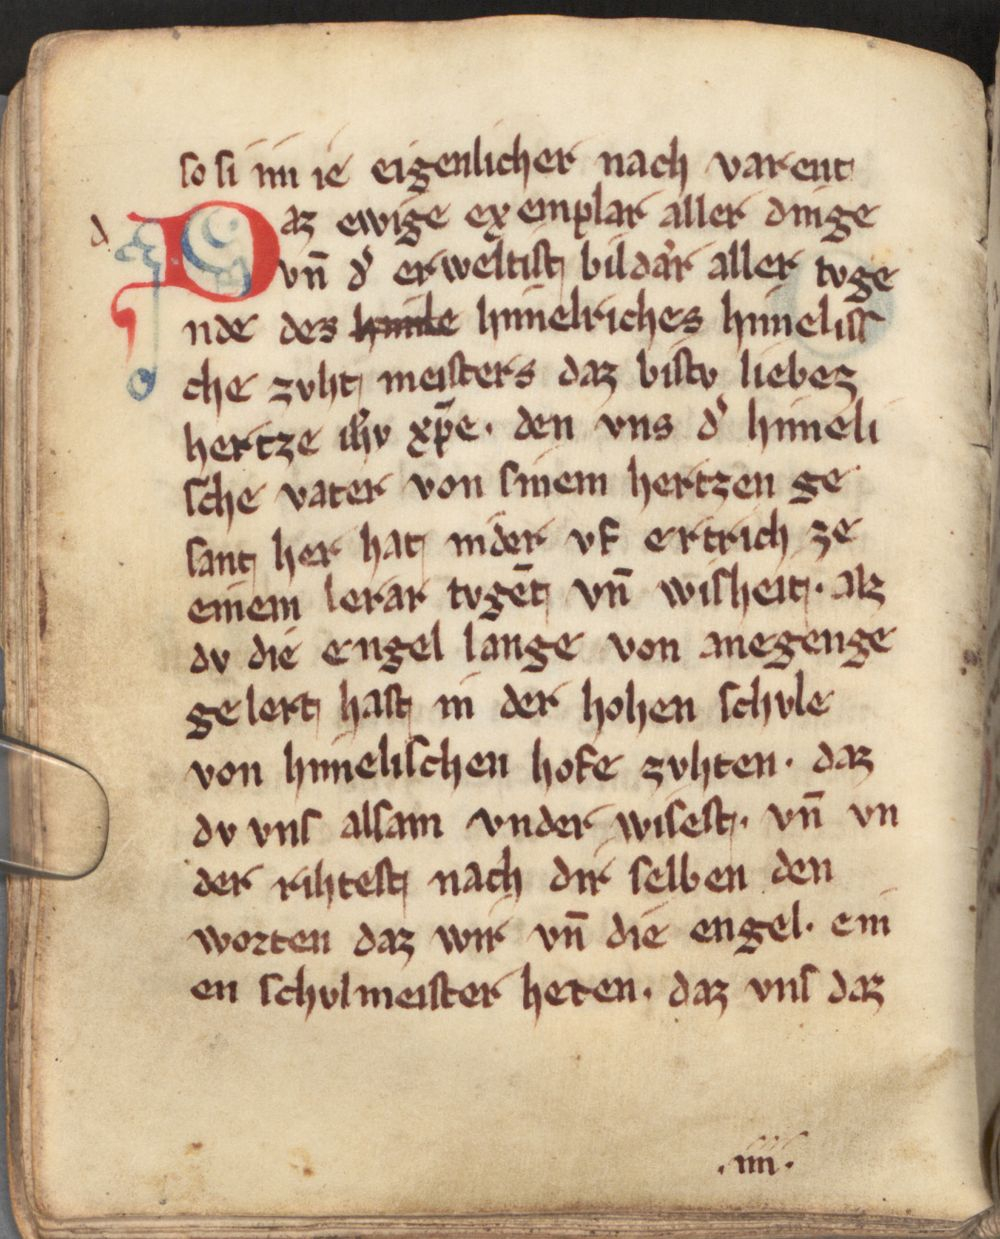 so si im ie eigenlicher nach varent
d
Daz ewige exemplar aller dinge
vn̄ d͛ erweltist bildar aller tvge
nde des himile himelriches himeliſſ
che zvht meisters daz bistv liebez
hertze ih̄v xp̄e · den vns d͛ himeli
ſche vater von ſinem hertzen ge
ſant her hat nider vf ertrich ze
einem lerar tvgēt vn̄ wiſheit · alz
dv die engel lange von anegenge
gelert hast in der hohen ſchvle
von himeliſchen hofe zvhten · daz
dv vnſ alſam vnder wiſest · vn̄ vn
der rihtest nach dir ſelben den
worten daz wir vn̄ die engel · ein
en ſchvlmeister heten · daz vnſ daz
· iiii ·